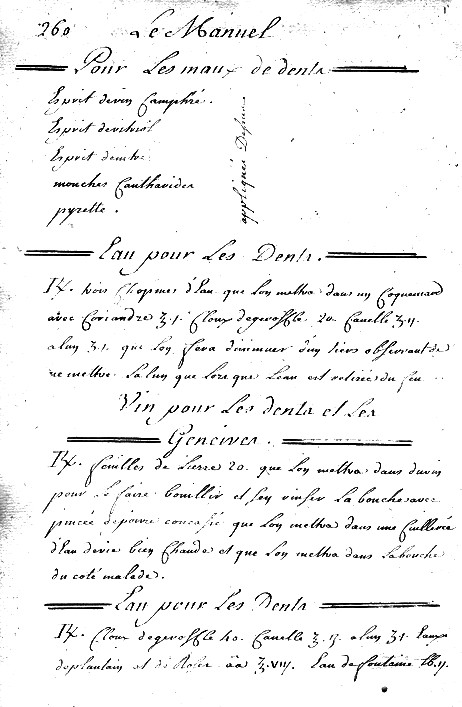 260 Le Manuel
Pour Les maux de dents
Esprit devin Camphré.
Esprit devitriol
Esprit denitre
mouches Cantharides
pyrette.
appliqués Dessus
Eau pour Les Dents.
℞. trois Chopines d'Eau que Lon mettra dans un Coquemard
avec Coriandre ʒ.j. Cloux degerofle 20. Canelle ʒ.ij.
alun ʒ.j. que Lon fera diminuer d'un tiers observant de
ne mettre Lalun que Lors que Leau est retirée du feu
Vin pour Les dents et Les
Gencives.
℞. feuilles de Lierre 20. que Lon mettra dans duvin
pour Le faire bouillir et sen rinser La bouche avec
pincée depoivre concassé que Lon mettra dans une Cuillerée
d'Eau devie bien Chaude et que Lon mettra dans Labouche
du coté malade.
Eau pour Les Dents
℞. Cloux degerofle 40. Canelle ʒ.ij. alun ʒ.j. Eaux
deplantain et de Roses āā ℥.viij. Eau de fontaine ℔.ij.